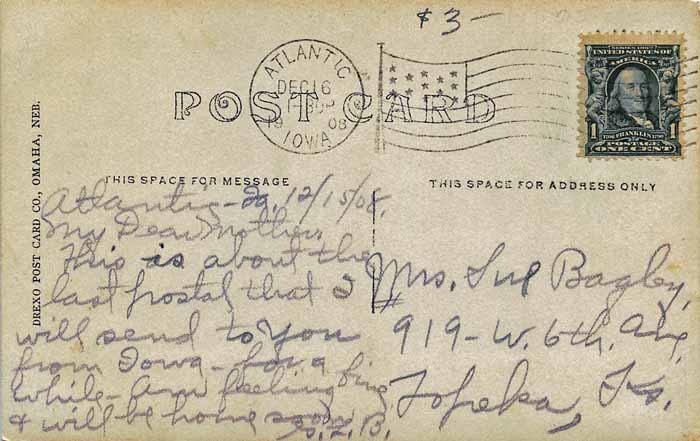 $3-
ATLANTIC
DEC 16
1908
IOWA
POST CARD
SERIES 1902
UNITED STATES OF
AMERICA
1 FRANKLIN 1
POSTAGE
ONE CENT
THIS SPACE FOR MESSAGE
THIS SPACE FOR ADDRESS ONLY
DREXO POST CARD CO., OMAHA, NEB.
Atlantic-Ia, 12/15/08.
My Dear Mother,
This is about the
last postal that I
will send to you
from Iowa - for a
while - Am feeling fine
& will be home soon
Mrs. Sue Bagby,
919-W. 6th, Ave,
Topeka, Ks.